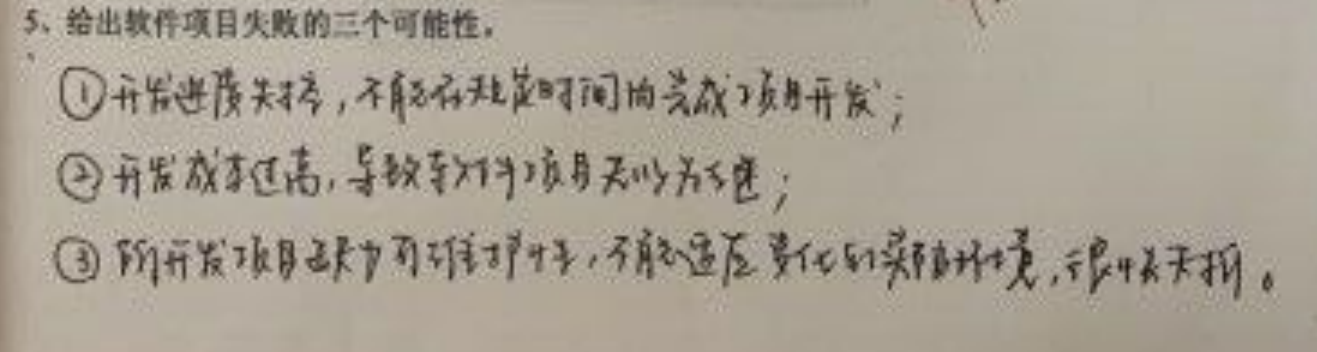 5、给出软件项目失败的三个可能性。
①开发进度失控，不能在规定时间内完成项目开发；
②开发成本过高，导致软件项目无以为继；
③所开发项目缺乏可维护性，不能适应变化的实际环境，很快夭折。